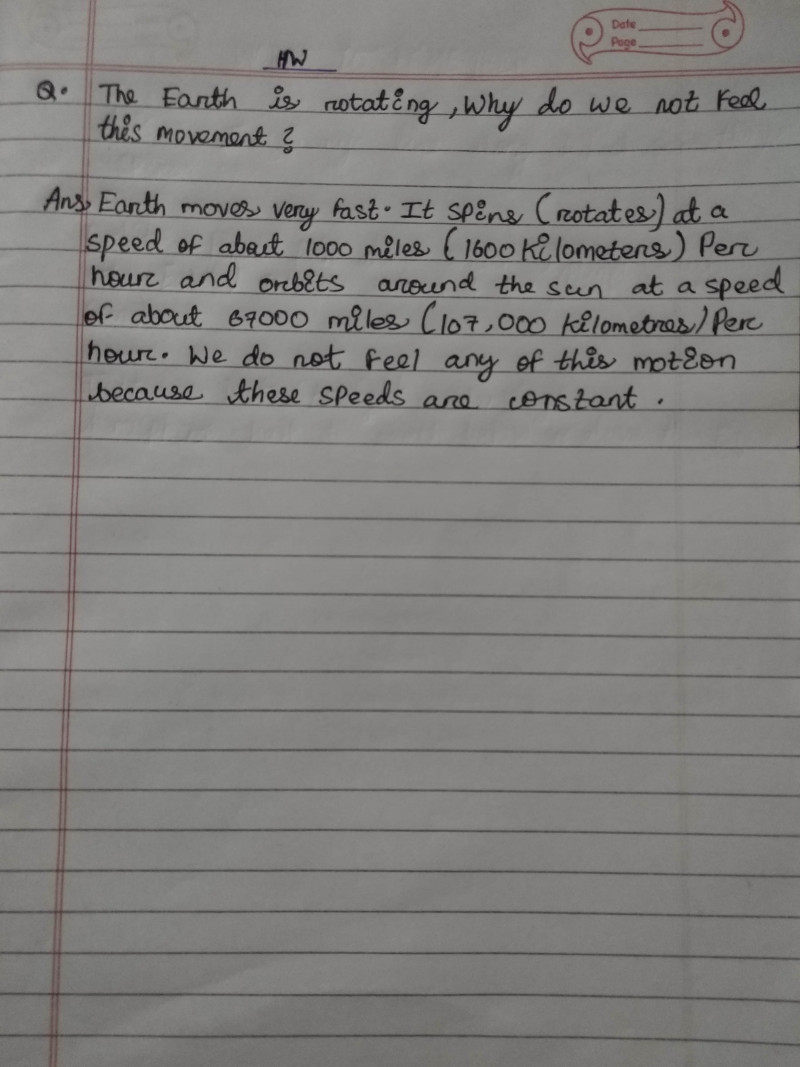 Date
Page
HW
Q. The Earth is rotating, Why do we not Feel
this movement ?
Ans, Earth moves very fast. It spins (rotates) at a
speed of about 1000 miles (1600 kilometers) Per
hour and orbits around the sun at a speed
of about 67000 miles (107,000 kilometres) Per
hour. We do not feel any of this motion
because these speeds are constant.